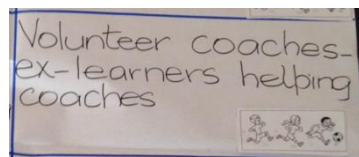 Volunteer coaches-
ex-learners helping
coaches